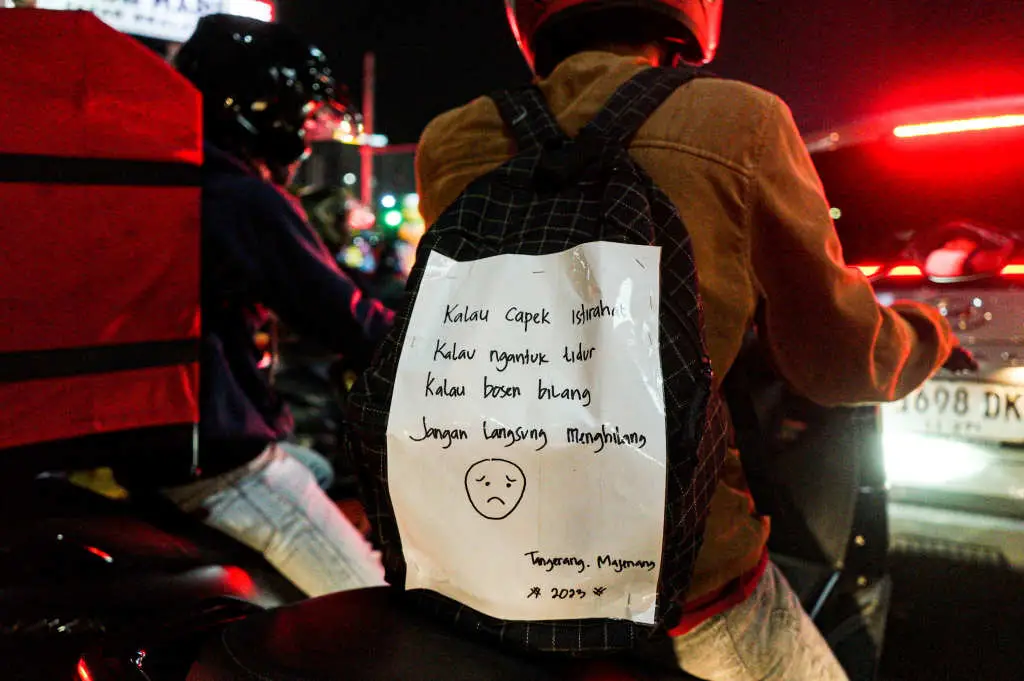 Kalau capek istirahat
Kalau ngantuk tidur
Kalau bosen bilang
Jangan langsung menghilang
Tangerang. Majenang
2023
1698 DK